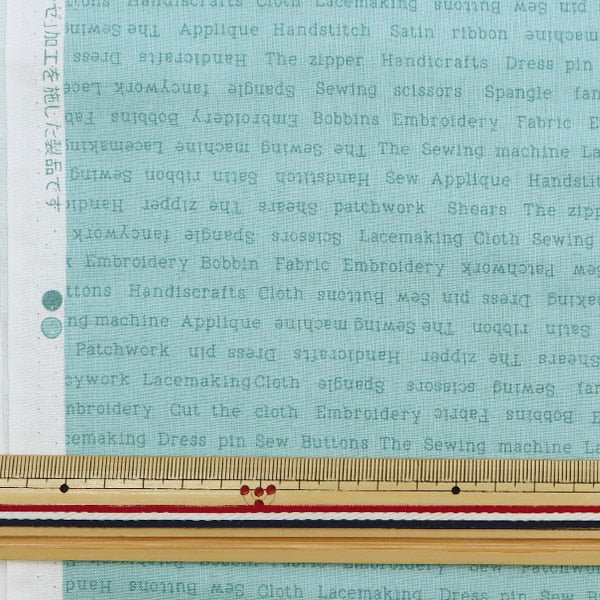 せ」加工を施した製品です
Handiscrafts Cloth Lacemaking Buttons Sew pin
The Sewing Applique Handstitch Satin ribbon machine
Dress Handicrafts The zipper Handicrafts Dress pin
Lace fancywork Spangle Sewing scissors Spangle
Bobbins Embroidery Bobbins Embroidery Fabric
Lacemaking machine Sewing The The Sewing machine
Sewing ribbon Satin Handstitch Sew Applique
zipper The Shears patchwork Shears The
fancywork Spangle Scissors Lacemaking Cloth Sewing
Embroidery Bobbin Fabric Embroidery Patchwork
Handiscrafts Cloth Buttons Sew pin Dress
machine Applique machine Sewing The ribbon Satin
Patchwork pin Dress Handicrafts zipper The Shears
LacemakingCloth Spangle scissors Sewing
Cut the cloth Embroidery Fabric Bobbins
Dress pin Sew Buttons The Sewing machine
Buttons Sew Cloth Lacemaking Dress pin Sew